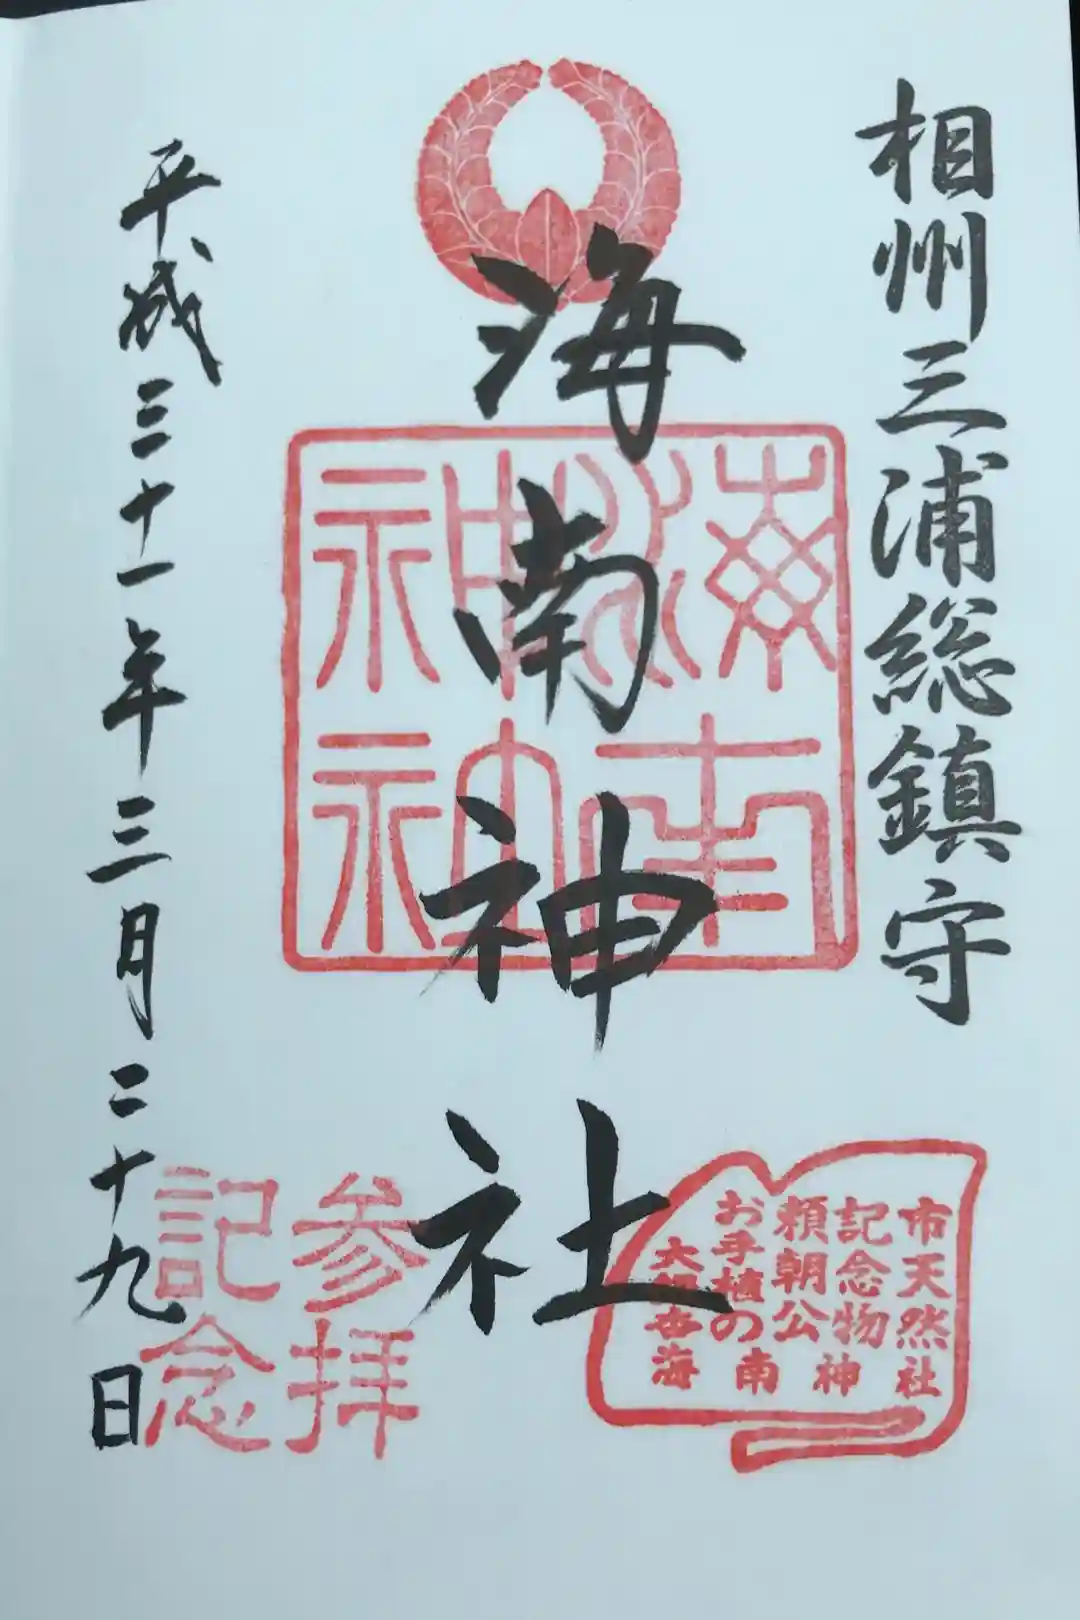 相州三浦総鎮守
海南神社
海南
神社
市天然
記念物
頼朝公
お手植の
大銀杏
海南神社
参拝
記念
平成三十一年三月二十九日